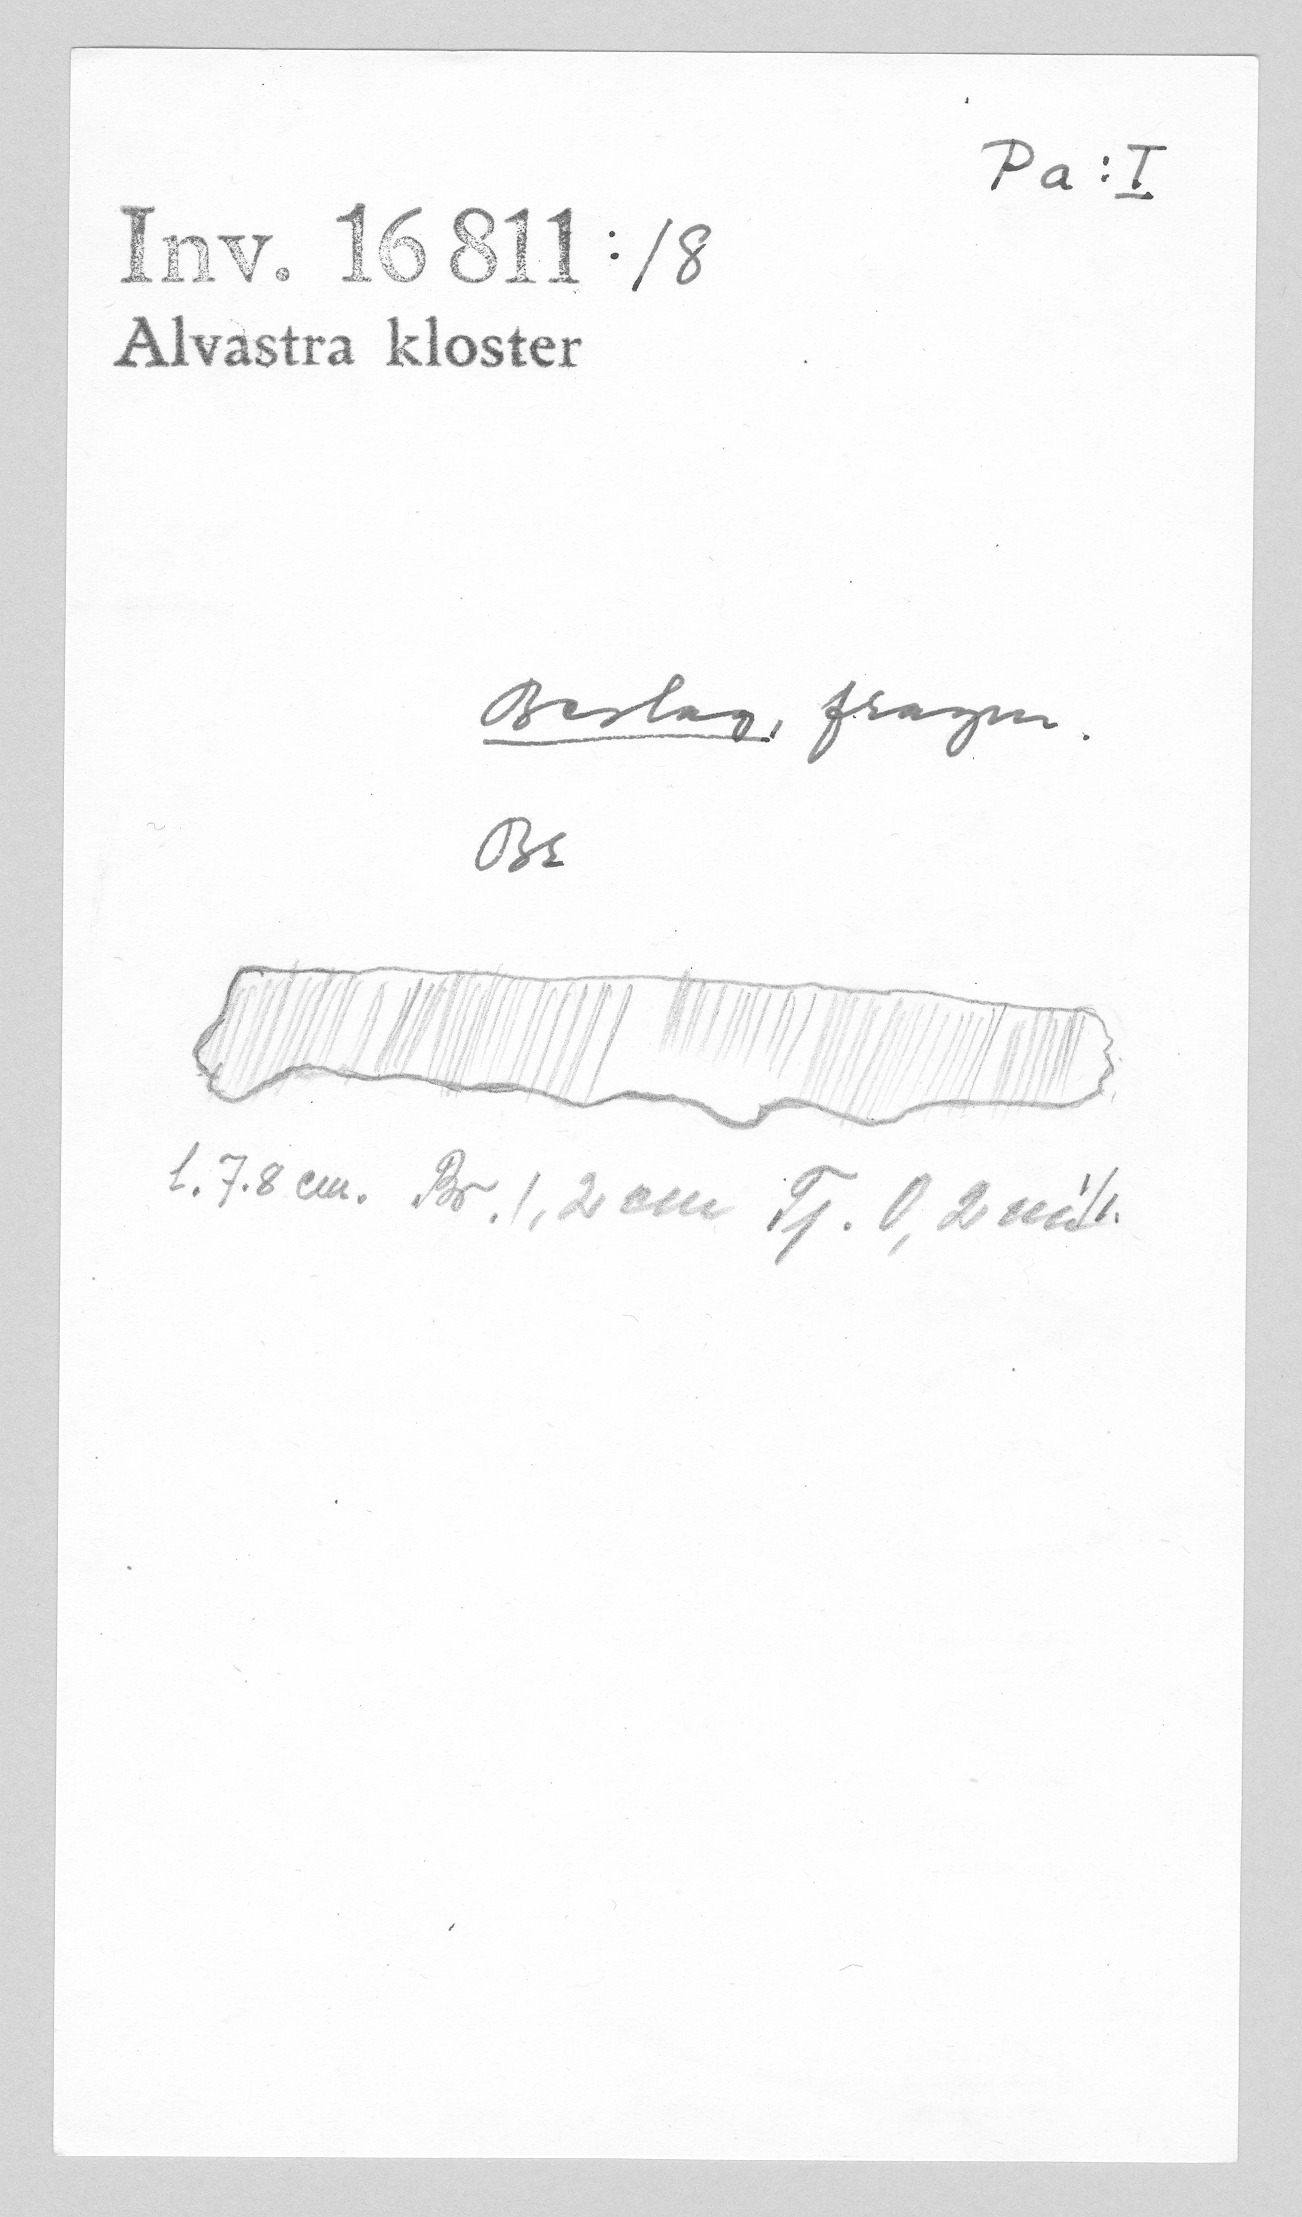 Pa:I
Inv. 16 811:/8
Alvastra kloster
Beslag, fragm.
Br
L. 7.8 cm. Br. 1,2 cm Tj. 0,2 cm 1/1.